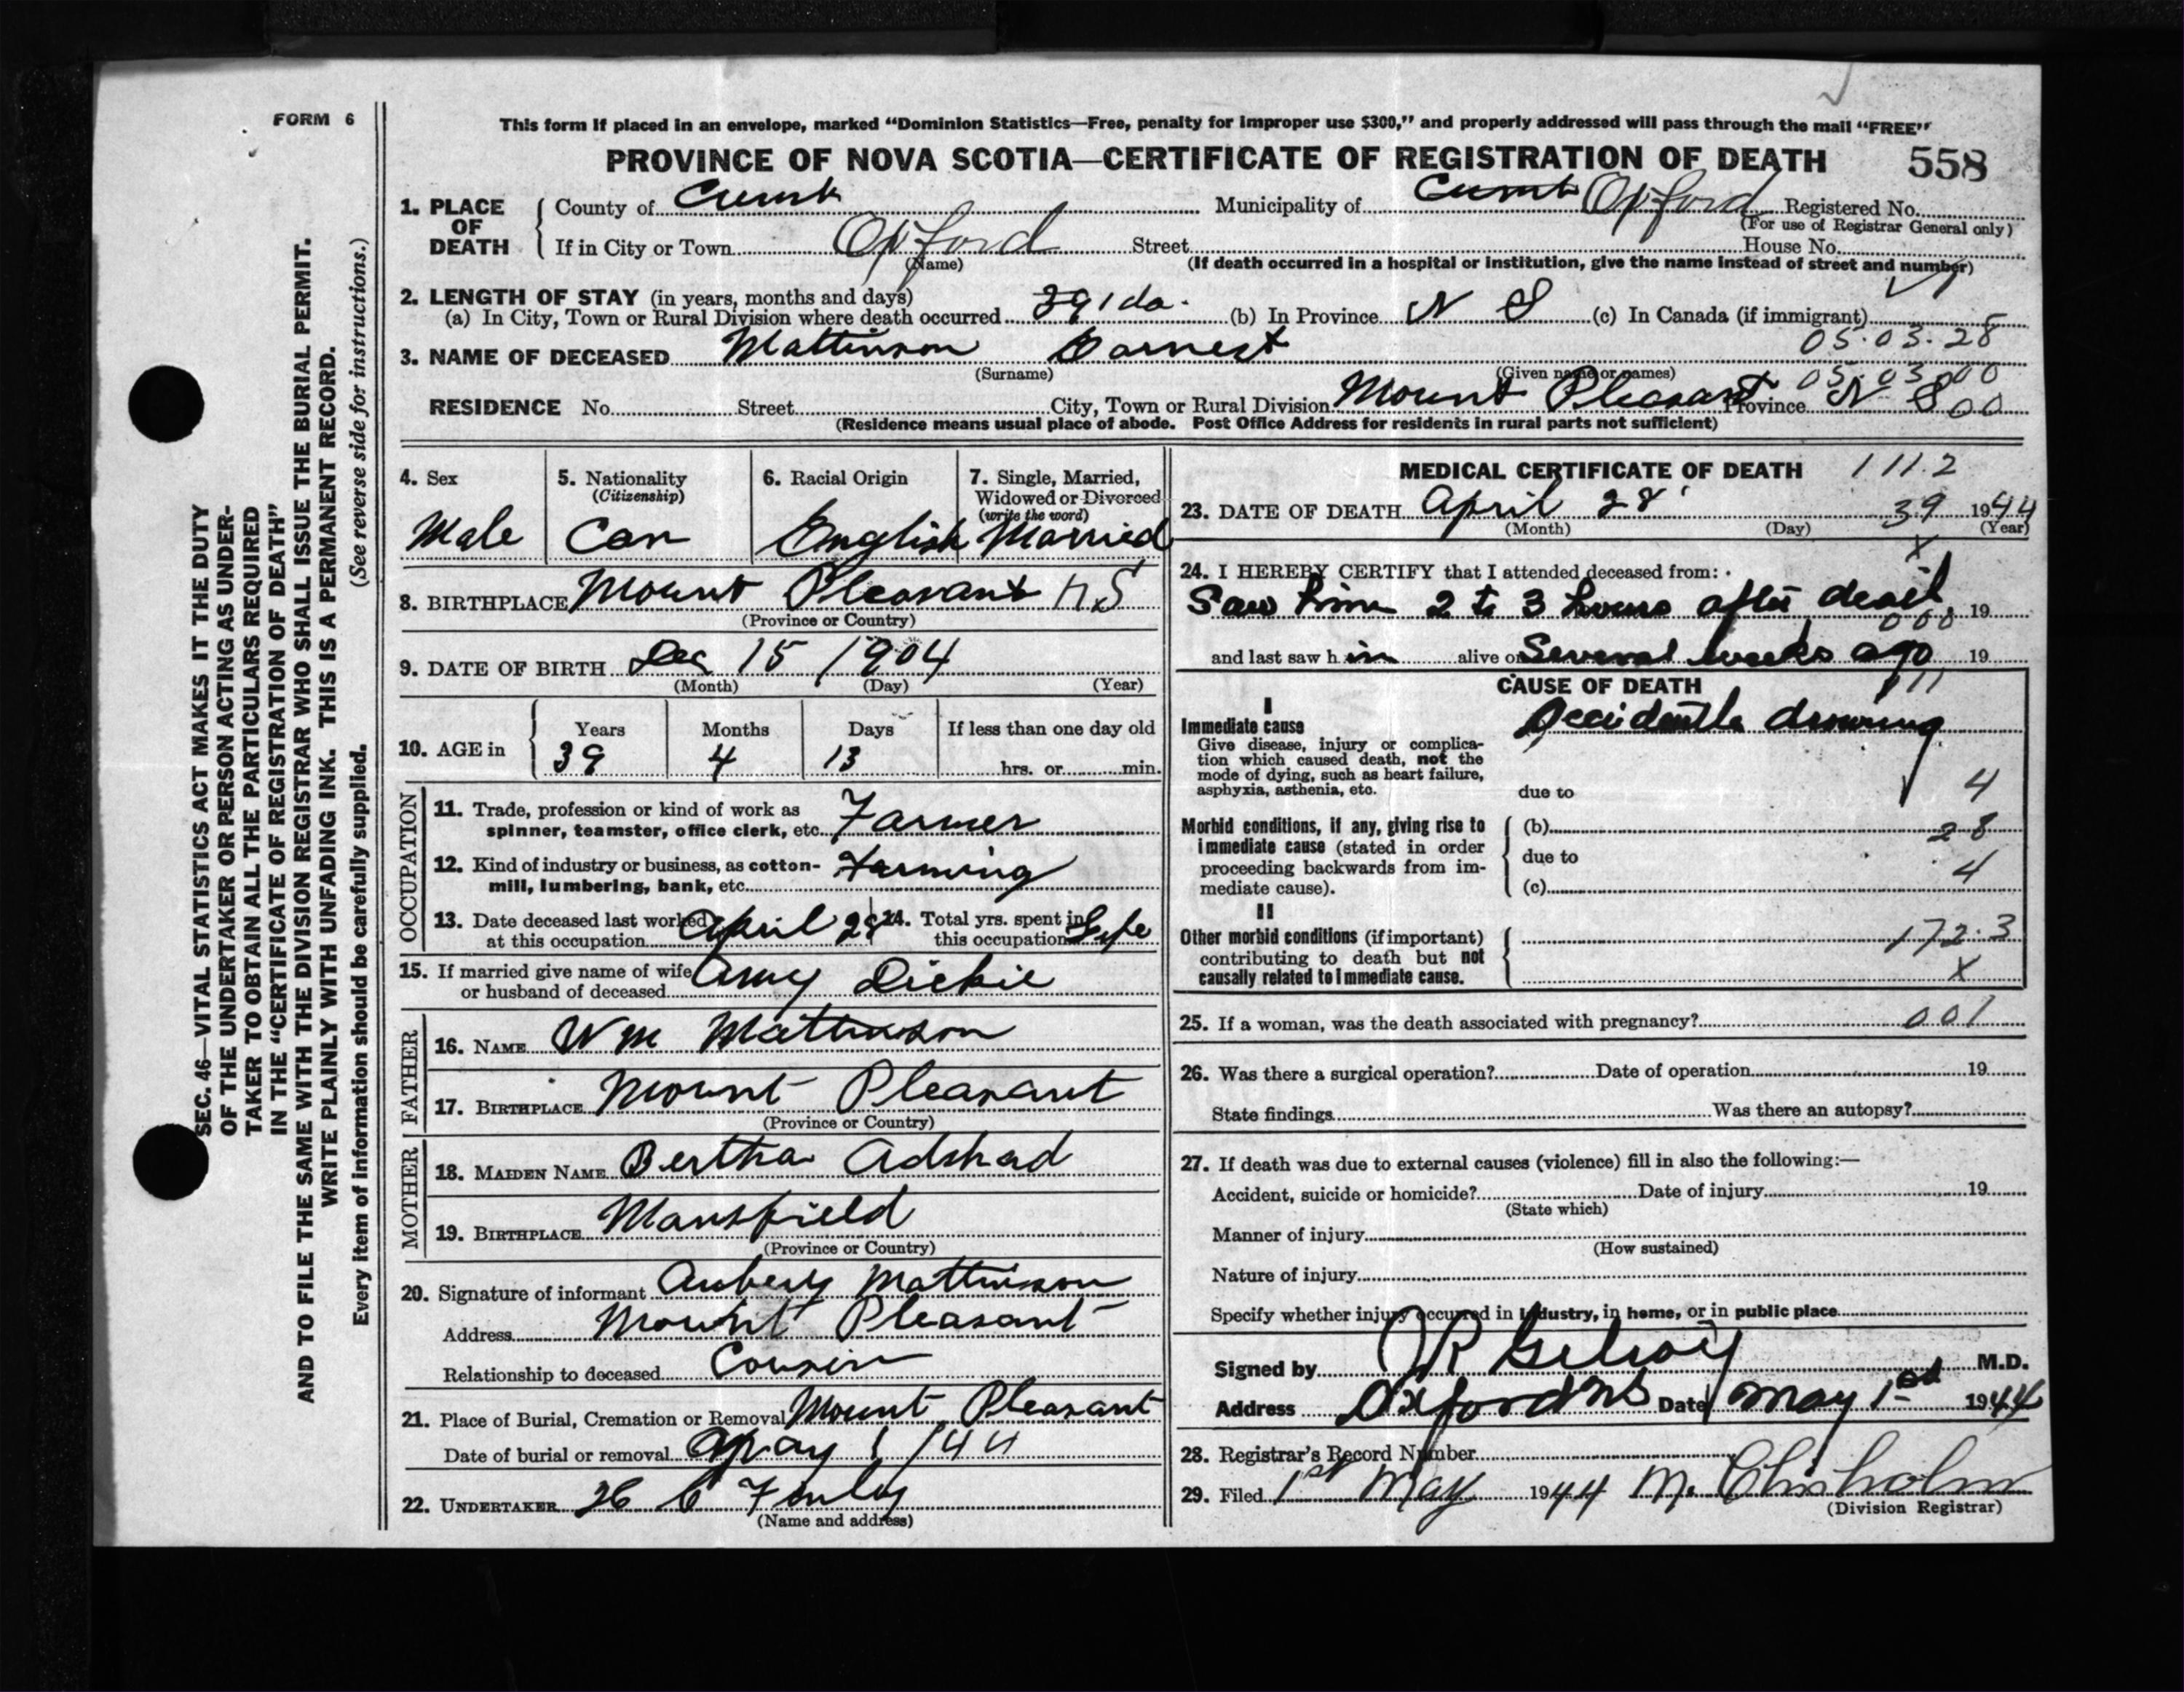 FORM 6
This form if placed in an envelope, marked “Dominion Statistics—Free, penalty for improper use $300,” and properly addressed will pass through the mail “FREE”
PROVINCE OF NOVA SCOTIA—CERTIFICATE OF REGISTRATION OF DEATH 558
1. PLACE OF DEATH { County of Cumb Municipality of Cumb Oxford Registered No.
(For use of Registrar General only)
If in City or Town Oxford Street House No.
(Name) (If death occurred in a hospital or institution, give the name instead of street and number)
2. LENGTH OF STAY (in years, months and days)
(a) In City, Town or Rural Division where death occurred (b) In Province N S (c) In Canada (if immigrant)
05.03.28
3. NAME OF DECEASED Mattinson Earnest
(Surname) (Given name or names)
05.03.00
RESIDENCE No. Street City, Town or Rural Division Mount Pleasant Province N S 00
(Residence means usual place of abode. Post Office Address for residents in rural parts not sufficient)
4. Sex
Male
5. Nationality
(Citizenship)
Can
6. Racial Origin
English
7. Single, Married,
Widowed or Divorced
(write the word)
Married
8. BIRTHPLACE Mount Pleasant N S
(Province or Country)
9. DATE OF BIRTH Dec 15 1904
(Month) (Day) (Year)
10. AGE in { Years Months Days If less than one day old
39 4 13 hrs. or min.
OCCUPATION
11. Trade, profession or kind of work as
spinner, teamster, office clerk, etc. Farmer
12. Kind of industry or business, as cotton-
mill, lumbering, bank, etc. Farming
13. Date deceased last worked
at this occupation April 28
14. Total yrs. spent in
this occupation Life
15. If married give name of wife
or husband of deceased Amy Dickie
FATHER
16. NAME Wm Mattinson
17. BIRTHPLACE Mount Pleasant
(Province or Country)
MOTHER
18. MAIDEN NAME Bertha Adshad
19. BIRTHPLACE Mansfield
(Province or Country)
20. Signature of informant Aubery Mattinson
Address Mount Pleasant
Relationship to deceased Cousin
21. Place of Burial, Cremation or Removal Mount Pleasant
Date of burial or removal May 1 / 44
22. UNDERTAKER
(Name and address)
MEDICAL CERTIFICATE OF DEATH 111.2
23. DATE OF DEATH April 28 39 1944
(Month) (Day) (Year)
x
24. I HEREBY CERTIFY that I attended deceased from:
Saw him 2 to 3 hours after death, 19
000
and last saw him alive on Several weeks ago 19
CAUSE OF DEATH
111
I
Immediate cause
Accidentle drowning
Give disease, injury or complica-
tion which caused death, not the
mode of dying, such as heart failure,
asphyxia, asthenia, etc.
due to 4
Morbid conditions, if any, giving rise to
immediate cause (stated in order
proceeding backwards from im-
mediate cause).
(b) 28
due to
(c) 4
II
Other morbid conditions (if important)
contributing to death but not
causally related to immediate cause.
172.3
x
25. If a woman, was the death associated with pregnancy? 001
26. Was there a surgical operation? Date of operation 19
State findings Was there an autopsy?
27. If death was due to external causes (violence) fill in also the following:—
Accident, suicide or homicide? Date of injury 19
(State which)
Manner of injury
(How sustained)
Nature of injury
Specify whether injury occurred in industry, in home, or in public place
Signed by JR Gilroy M.D.
Address Oxford NS Date May 1st 1944
28. Registrar's Record Number
29. Filed 1st May 1944 M. Chisholm
(Division Registrar)
SEC. 46—VITAL STATISTICS ACT MAKES IT THE DUTY
OF THE UNDERTAKER OR PERSON ACTING AS UNDER-
TAKER TO OBTAIN ALL THE PARTICULARS REQUIRED
IN THE “CERTIFICATE OF REGISTRATION OF DEATH”
AND TO FILE THE SAME WITH THE DIVISION REGISTRAR WHO SHALL ISSUE THE BURIAL PERMIT.
WRITE PLAINLY WITH UNFADING INK. THIS IS A PERMANENT RECORD.
Every item of information should be carefully supplied. (See reverse side for instructions.)